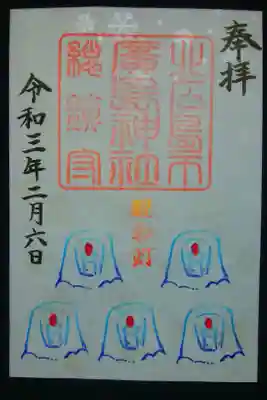 奉拝
北広島市
廣島神社
総鎮守
灯
令和三年二月六日